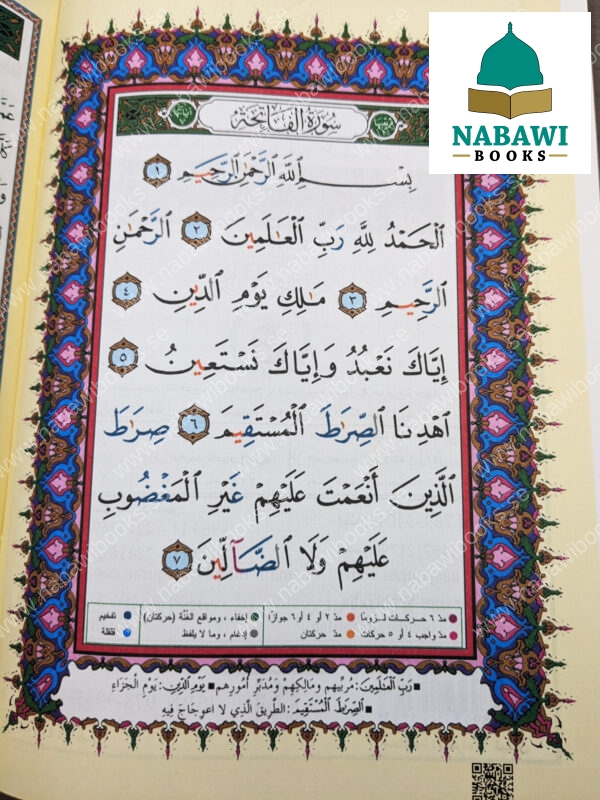 NABAWI
BOOKS
سُورَةُ الفَاتِحَةِ
بِسْمِ ٱللَّهِ ٱلرَّحْمَٰنِ ٱلرَّحِيمِ ١
ٱلْحَمْدُ لِلَّهِ رَبِّ ٱلْعَٰلَمِينَ ٢ ٱلرَّحْمَٰنِ
ٱلرَّحِيمِ ٣ مَٰلِكِ يَوْمِ ٱلدِّينِ ٤
إِيَّاكَ نَعْبُدُ وَإِيَّاكَ نَسْتَعِينُ ٥
ٱهْدِنَا ٱلصِّرَٰطَ ٱلْمُسْتَقِيمَ ٦ صِرَٰطَ
ٱلَّذِينَ أَنْعَمْتَ عَلَيْهِمْ غَيْرِ ٱلْمَغْضُوبِ
عَلَيْهِمْ وَلَا ٱلضَّآلِّينَ ٧
مدّ ٦ حركـات لـزومًا مدّ ٢ أو ٤ أو ٦ جوازًا إخفاء ، ومواقع الغُنَّة (حركتان) تفخيم
مدّ واجب ٤ أو ٥ حركات مدّ حركتان إدغام ، وما لا يلفظ قلقلة
■ رَبِّ ٱلْعَٰلَمِينَ: مُربِّيهم ومَالِكِهِمْ وَمُدَبِّرِ أُمُورِهم ■ يَوْمِ ٱلدِّينِ: يَوْمِ الْجَزَاءِ
■ ٱلصِّرَٰطَ ٱلْمُسْتَقِيمَ: الطَّرِيقَ الَّذِي لا اعوِجَاجَ فِيهِ
www.nabawibooks.se